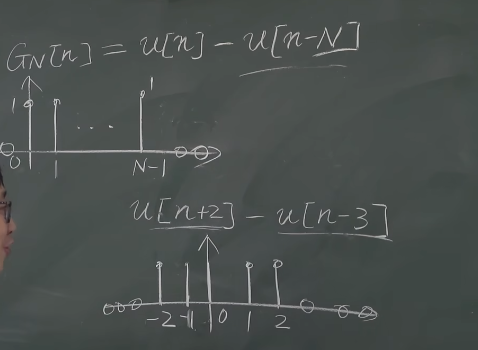 G_N[n] = u[n] - u[n-N]
1 1
...
0 1 N-1
u[n+2] - u[n-3]
-2 -1 0 1 2